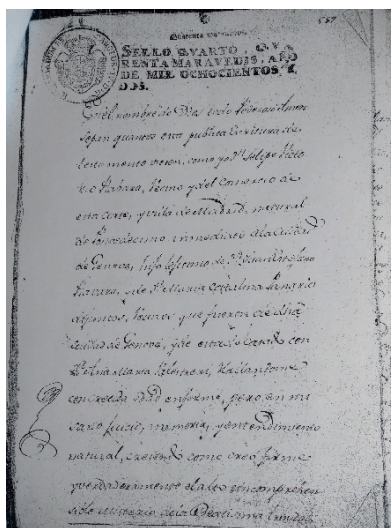 Quarenta maravedis.
557
SELLO QVARTO, QVA
RENTA MARAVEDIS, AÑO
DE MIL OCHOCIENTOS Y
DOS.
En el nombre de Dios todo Poderoso Amen
Sepan quantos esta publica Escritura de
testamento vieren, como yo Dn. Felipe
vecino y del Comercio de
esta Corte, y villa de Madrid, natural
de inmediato a la Ciudad
de Genova, hijo lexitimo de Dn. Juan
y de Da. Maria Catalina
difuntos, vecinos que fueron de dha.
ciudad de Genova, y de estado casado con
Da. Ana Maria hallandome
con crecida edad enfermo, pero en mi
sano juicio, memoria, y entendimiento
natural, creiendo como creo firme
y verdaderamente el alto incomprehen
sible Misterio de la Beatisima Trinidad